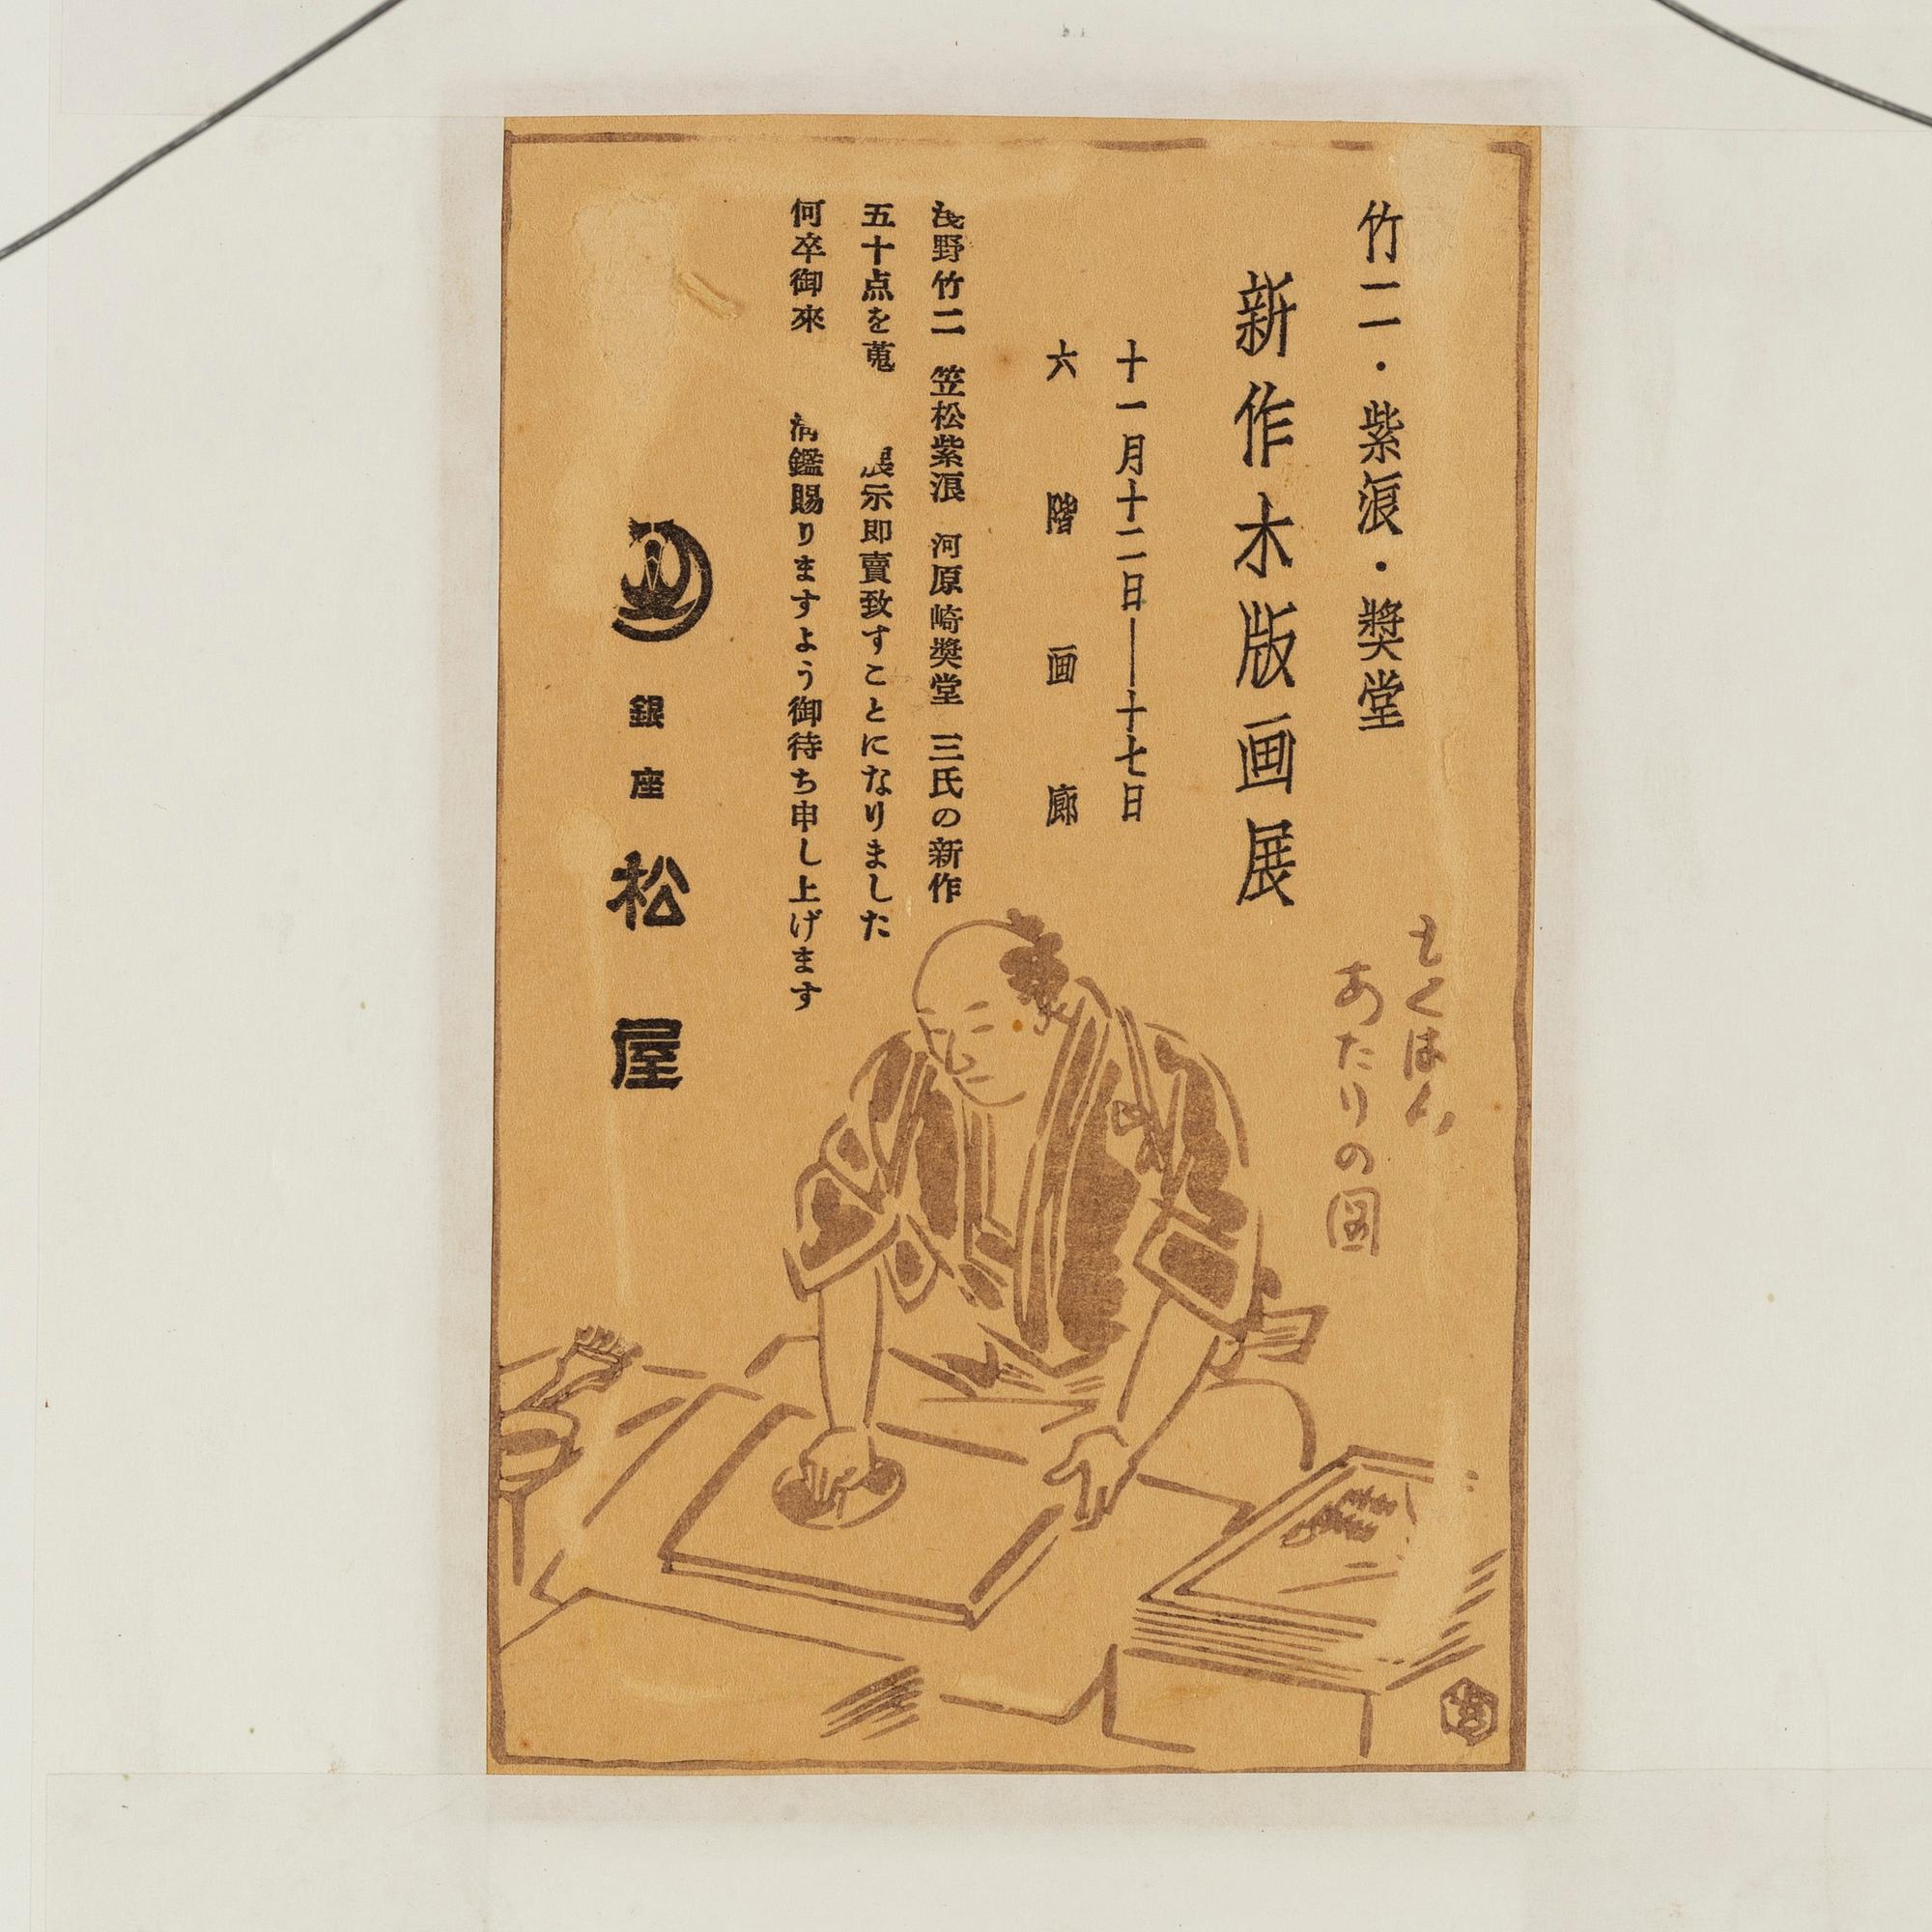 竹二・紫浪・奨堂
新作木版画展
十一月十二日―十七日
六階画廊
浅野竹二 笠松紫浪 河原崎奨堂 三氏の新作
五十点を蒐 展示即賣致すことになりました
何卒御來 清鑑賜りますよう御待ち申し上げます
銀座 松屋
もくはん
あたりの図